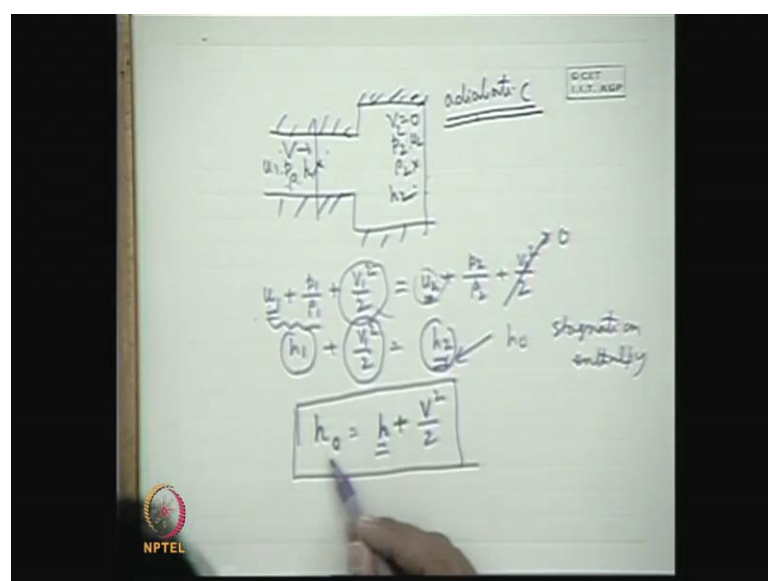 adiabatic
© CET
I.I.T. KGP
V→ V₂=0
u₁ p₁ ρ₁ h₁ p₂ u₂
ρ₂
h₂
u₁ + p₁/ρ₁ + V₁²/2 = u₂ + p₂/ρ₂ + V₂²/2 → 0
h₁ + V₁²/2 = h₂ h₀ stagnation
enthalpy
h₀ = h + V²/2
NPTEL